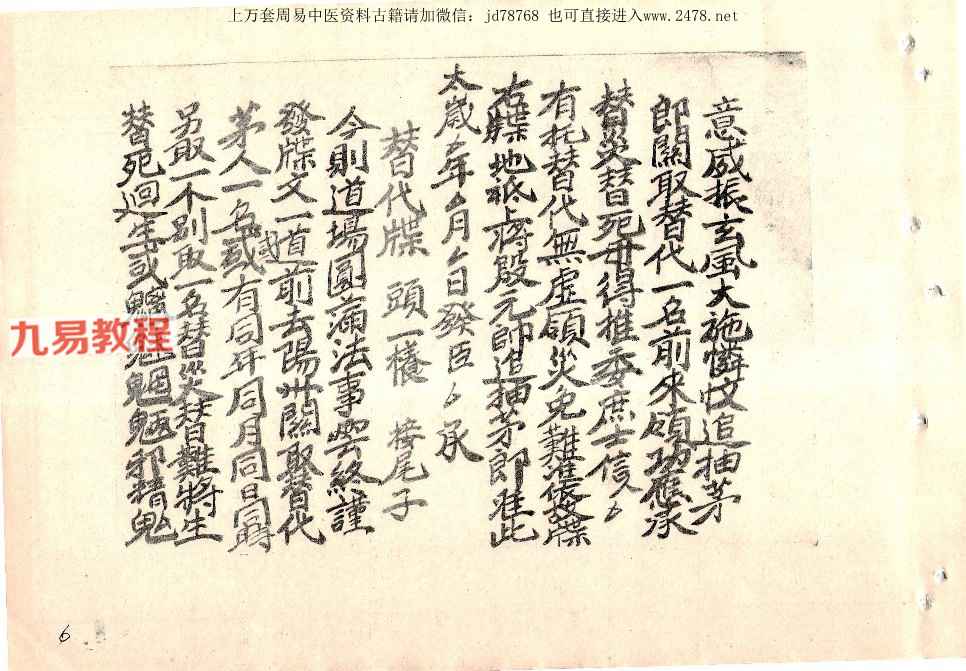 上万套周易中医资料古籍请加微信：jd78768 也可直接进入www.2478.net
意威振玄風大施憐憫追抽茅
郎關取替代一名前來領功應承
替災替死毋得推委庶士信人
有托替代無虛願災免難准發牒
右牒地祇上將殷元帥追抽茅郎准此
太歲年月日發臣承
替代牒 頭一樣 接尾子
今則道場圓滿法事雲終謹
發牒文一道前去陽州關取替代
茅人一名或有同年同月同日同時
另取一个別取一名替災替難將生
替死迴生或邪精鬼
九易教程
6